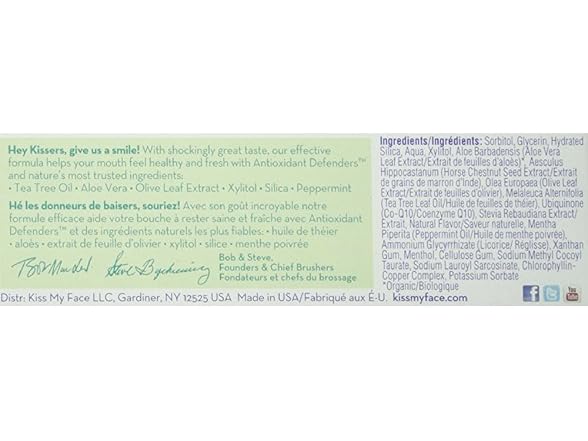 Hey Kissers, give us a smile! With shockingly great taste, our effective
formula helps your mouth feel healthy and fresh with Antioxidant Defenders™
and nature's most trusted ingredients:
• Tea Tree Oil • Aloe Vera • Olive Leaf Extract • Xylitol • Silica • Peppermint
Hé les donneurs de baisers, souriez! Avec son goût incroyable notre
formule efficace aide votre bouche à rester saine et fraîche avec Antioxidant
Defenders™ et des ingrédients naturels les plus fiables: • huile de théier
• aloès • extrait de feuille d'olivier • xylitol • silice • menthe poivrée
Bob & Steve,
Founders & Chief Brushers
Fondateurs et chefs du brossage
Distr: Kiss My Face LLC, Gardiner, NY 12525 USA Made in USA/Fabriqué aux É-U. kissmyface.com
Ingredients/Ingrédients: Sorbitol, Glycerin, Hydrated
Silica, Aqua, Xylitol, Aloe Barbadensis (Aloe Vera)
Leaf Extract/Extrait de feuilles d'aloès)*, Aesculus
Hippocastanum (Horse Chestnut Seed Extract/Extrait
de grains de marron d'Inde), Olea Europaea (Olive Leaf/
Extract/Extrait de feuilles d'olivier), Melaleuca Alternifolia
(Tea Tree Leaf Oil/Huile de théier), Ubiquinone
(Co-Q10/Coenzyme Q10), Stevia Rebaudiana Extract/
Extrait, Natural Flavor/Saveur naturelle, Mentha
Piperita (Peppermint Oil/Huile de menthe poivrée),
Ammonium Glycyrrhizate (Licorice/ Réglisse), Xanthan
Gum, Menthol, Cellulose Gum, Sodium Methyl Cocoyl
Taurate, Sodium Lauroyl Sarcosinate, Chlorophyllin-
Copper Complex, Potassium Sorbate
*Organic/Biologique
f
You
Tube